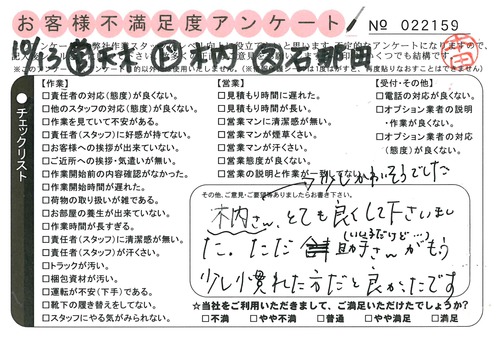 お客様不満足度アンケート
№ 022159
10/3
チェックリスト
【作業】
□責任者の対応(態度)が良くない。
□他のスタッフの対応(態度)が良くない。
□作業を見ていて不安がある。
□責任者(スタッフ)に好感が持てない。
□お客様への挨拶が出来ていない。
□ご近所への挨拶・気遣いが無い。
□作業開始前の内容確認がなかった。
□作業開始時間が遅れた。
□荷物の取り扱いが雑である。
□お部屋の養生が出来ていない。
□作業時間が長すぎる。
□責任者(スタッフ)に清潔感が無い。
□責任者(スタッフ)が汗くさい。
□トラックが汚い。
□梱包資材が汚い。
□運転が不安(下手)である。
□靴下の履き替えをしてない。
□スタッフにやる気がみられない。
【営業】
□見積もり時間に遅れた。
□見積もり時間が長い。
□営業マンに清潔感が無い。
□営業マンが煙草くさい。
□営業マンが汗くさい。
□営業態度が良くない。
□営業の説明と作業が一致してない。
【受付・その他】
□電話の対応が良くない。
□オプション業者の説明
・作業が良くない。
□オプション業者の対応
(態度)が良くない。
少しかわいそうでした
その他、ご意見・ご要望等ありましたらお書き下さい。
木内さん、とても良くして下さいまし
た。ただ 助手さんがもう
(いい子だけど…)
少し慣れた方だと良かったです
☆当社をご利用いただきまして、ご満足いただけたでしょうか?
□不満 □やや不満 □普通 □やや満足 □満足